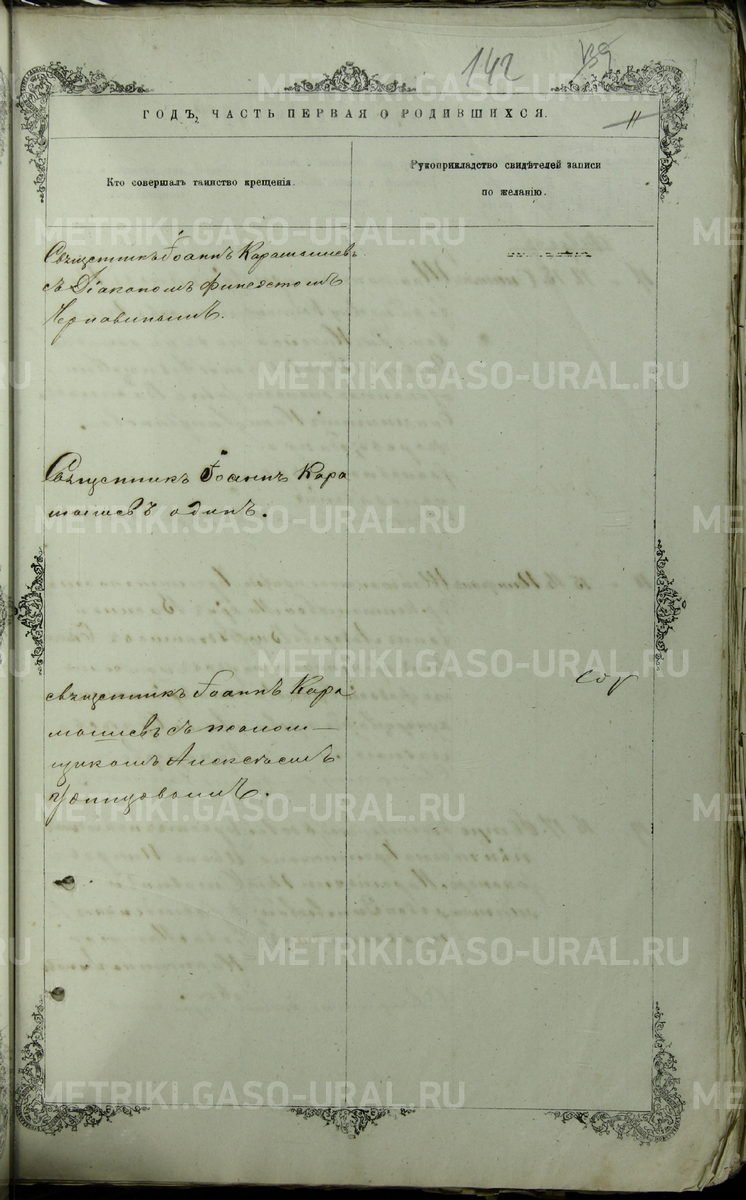 142
ГОДЪ, ЧАСТЬ ПЕРВАЯ О РОДИВШИХСЯ.
11
Кто совершалъ таинство крещенія.
Рукоприкладство свидѣтелей записи
по желанію.
Священникъ Іоаннъ Карамышевъ
съ Діакономъ
Священникъ Іоаннъ Кара
мышевъ одинъ.
священникъ Іоаннъ Кара
мышевъ съ псаломъ—
щикомъ Алексѣемъ
METRIKI.GASO-URAL.RU